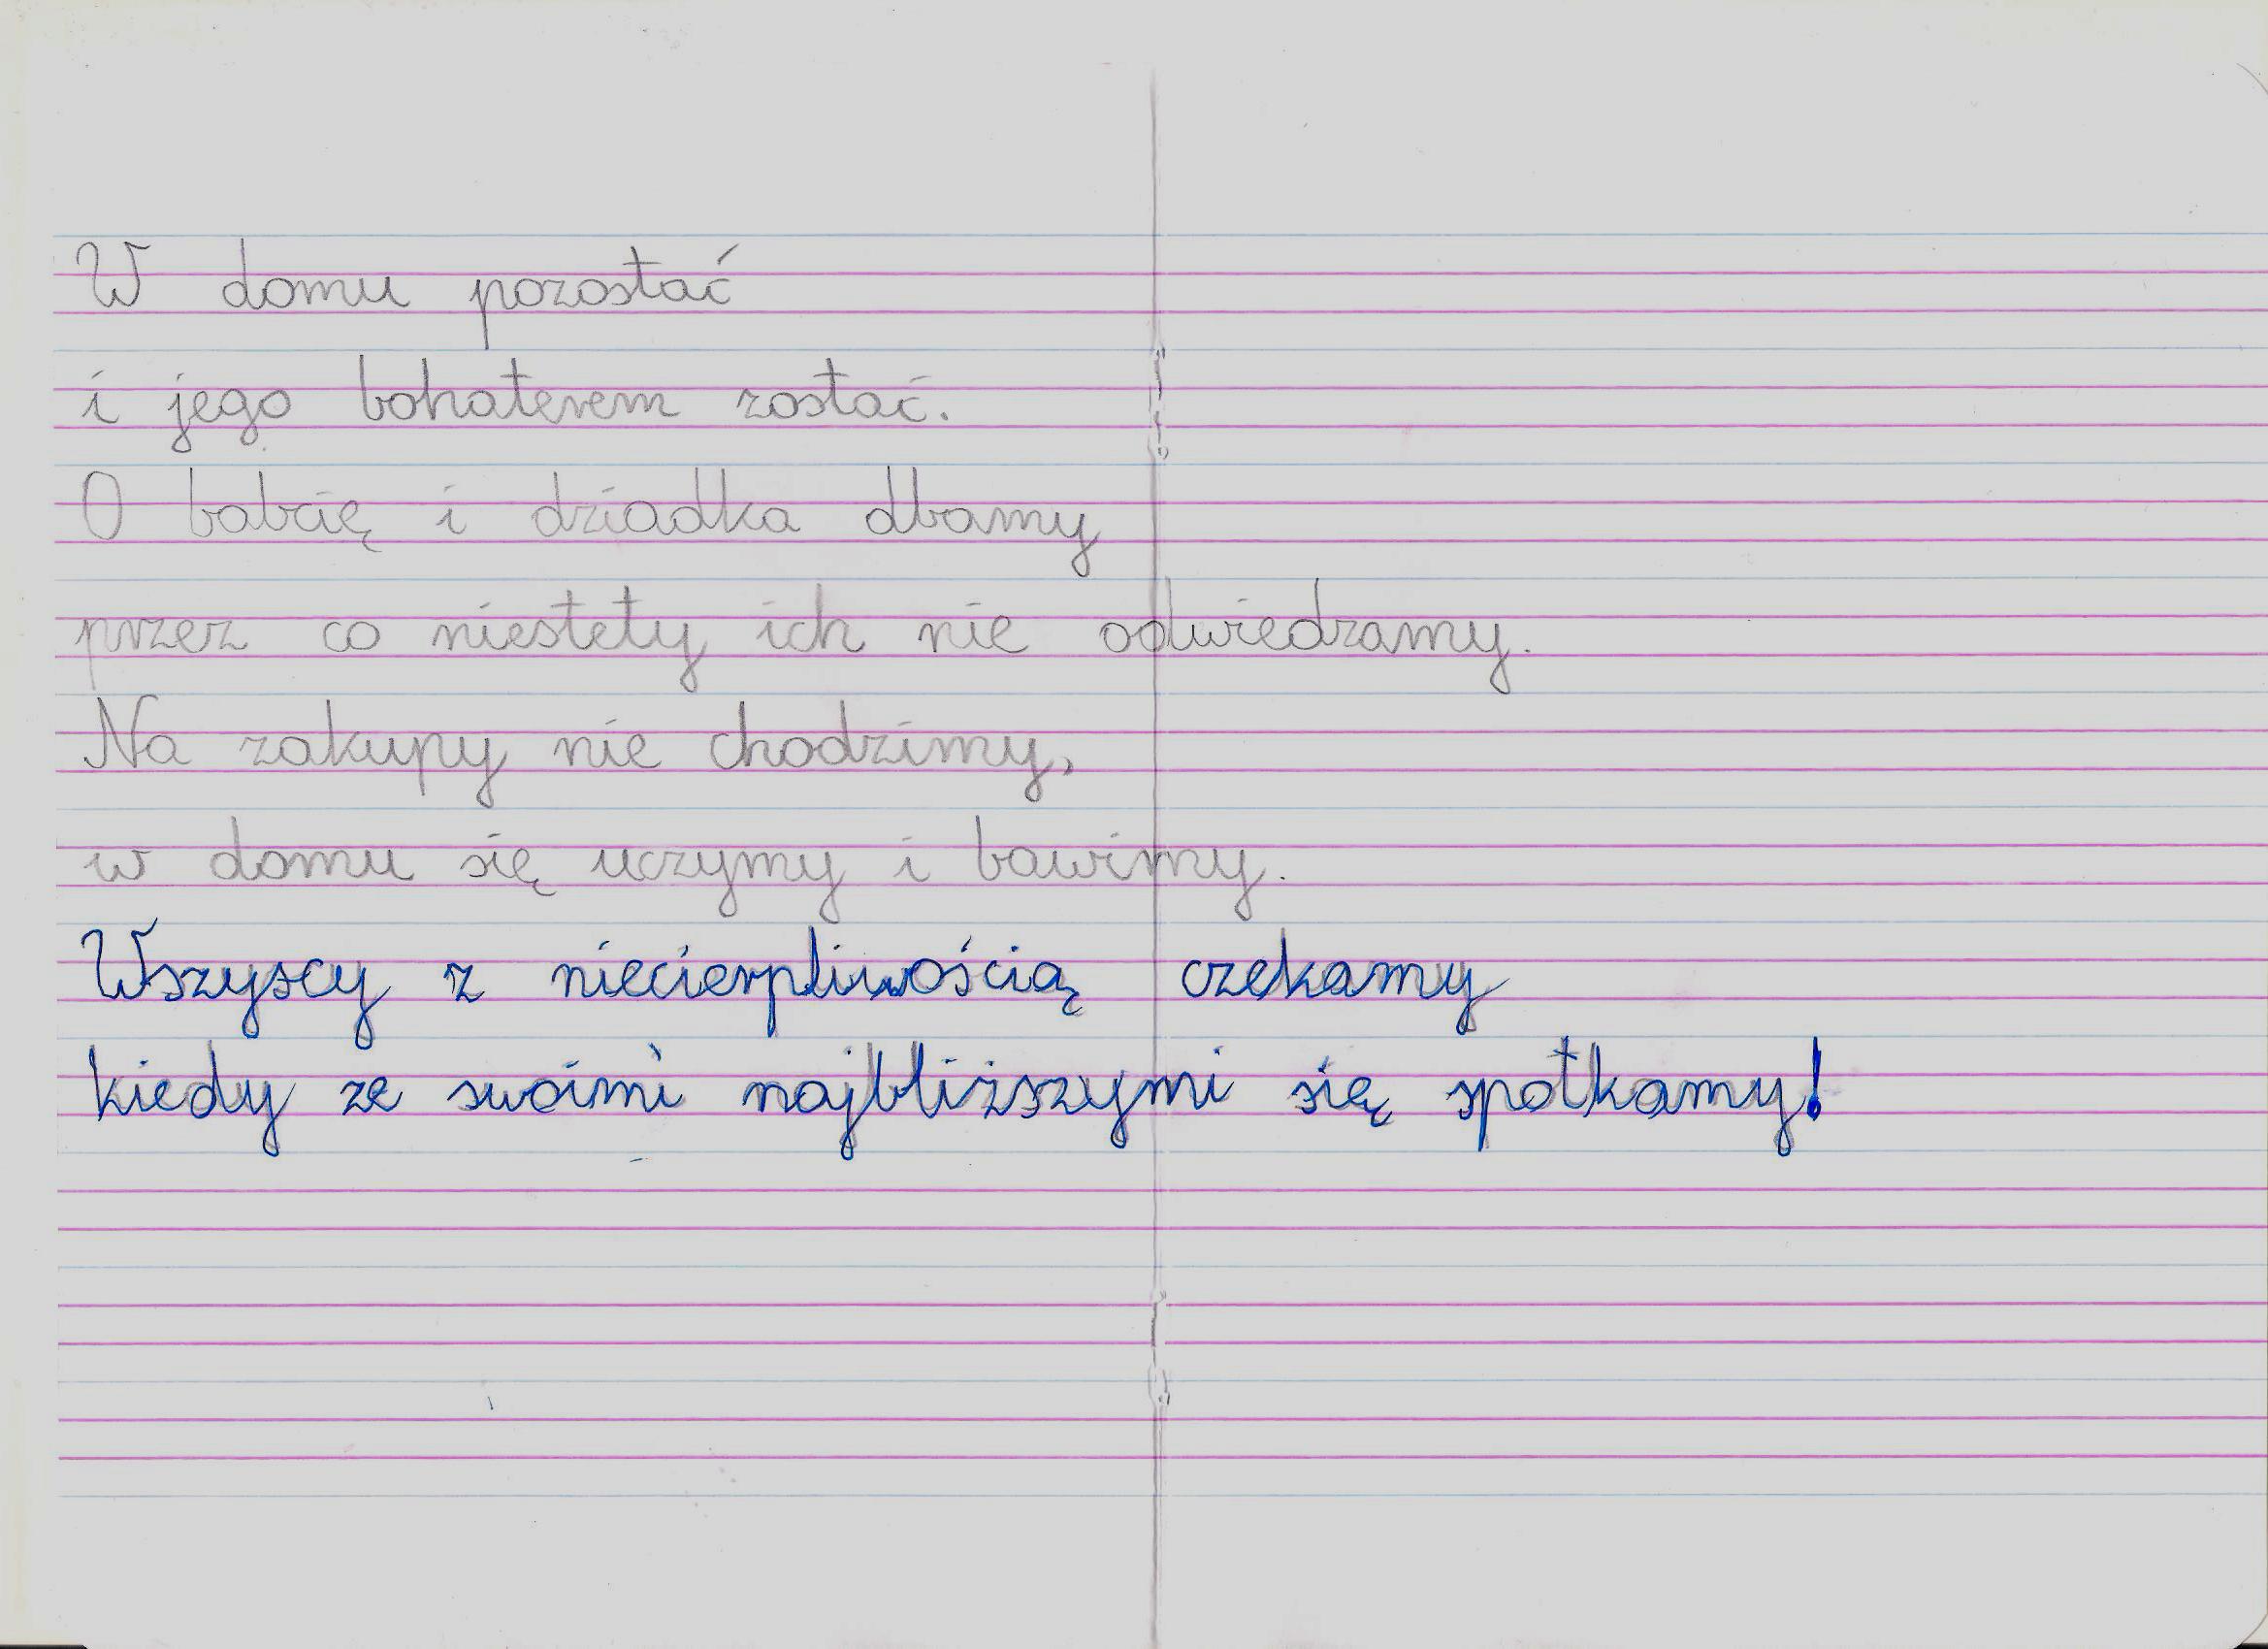 W domu pozostać
i jego bohaterem zostać.
O babcię i dziadka dbamy
przez co niestety ich nie odwiedzamy.
Na zakupy nie chodzimy,
w domu się uczymy i bawimy.
Wszyscy z niecierpliwością czekamy
kiedy ze swoimi najbliższymi się spotkamy!